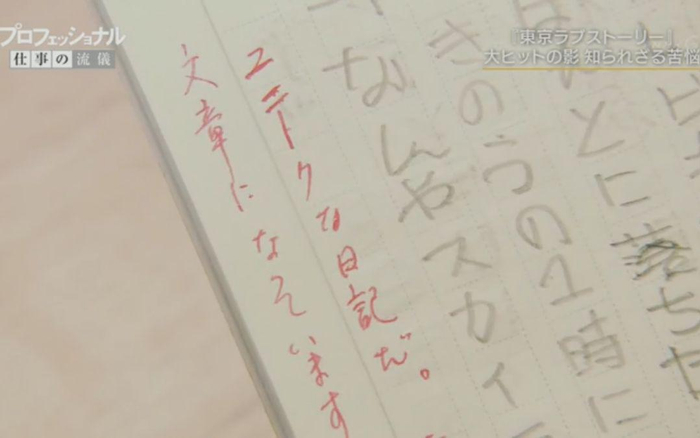 プロフェッショナル
仕事の流儀
『東京ラブストーリー』
大ヒットの影 知られざる苦悩
ほんとに落ちた
きのうの1時に
なんやスカイ
ユニークな日記だ。
文章になっています